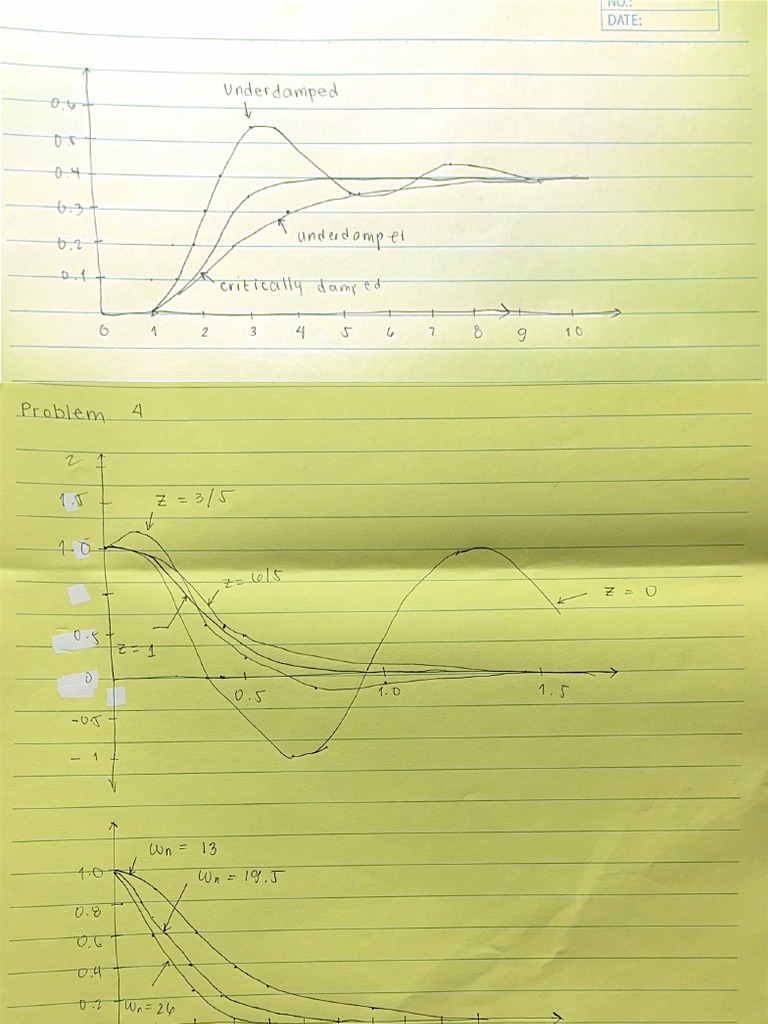 NO.:
DATE:
underdamped
0.6
0.5
0.4
0.3
underdamper
0.2
0.1
critically damped
0 1 2 3 4 5 6 7 8 9 10
Problem 4
2
1.5
z = 3/5
1.0
z=6/5
z = 0
0.5
z=1
0
0.5 1.0 1.5
-0.5
-1
ωn = 13
1.0
ωn = 19.5
0.8
0.6
0.4
0.2
ωn=26